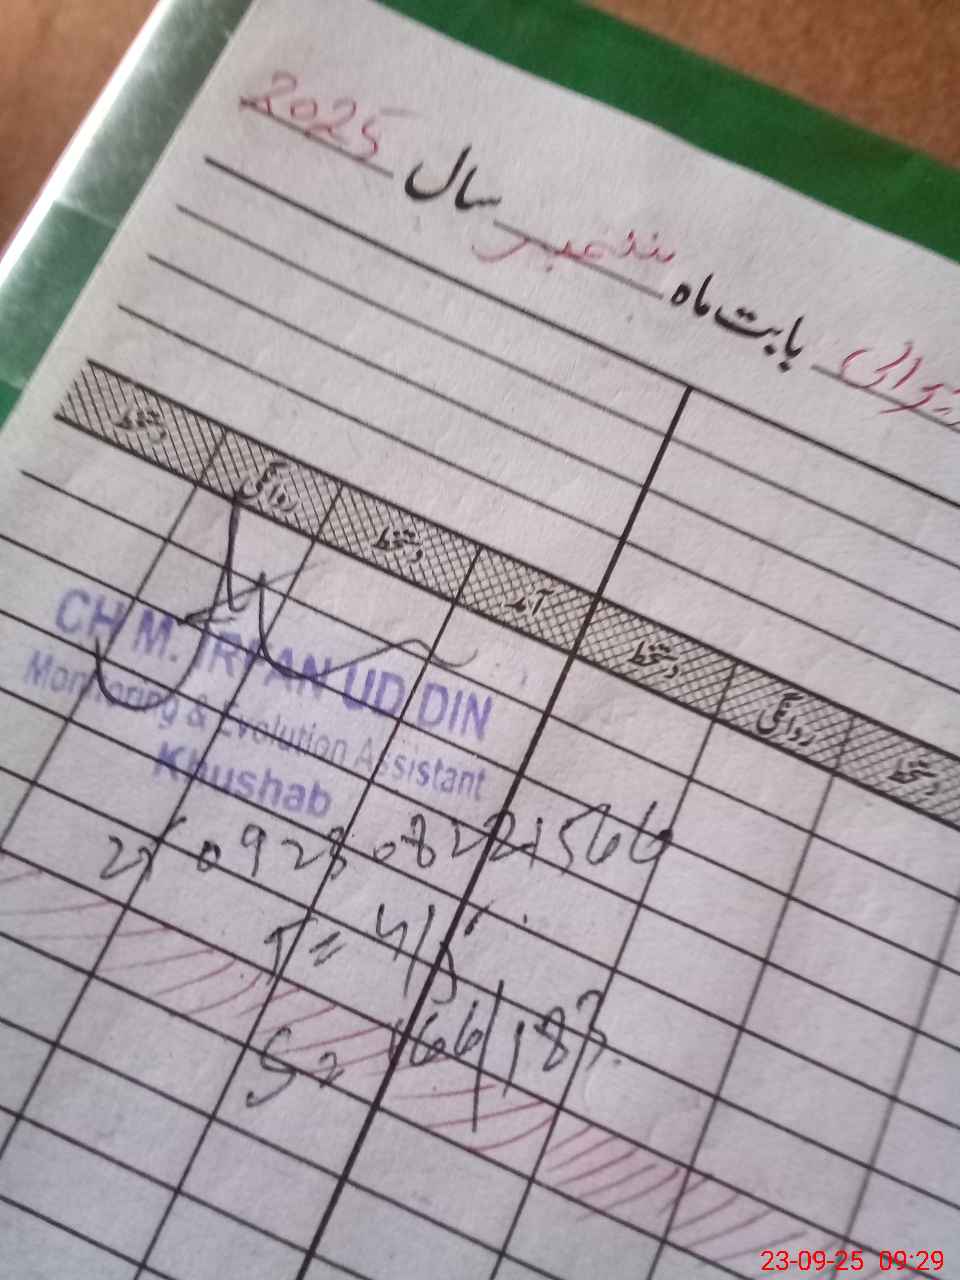 بابت ماہ ستمبر سال 2025
دستخط روانگی دستخط آمد دستخط روانگی دستخط
CH M. IRFAN UD DIN
Monitoring & Evolution Assistant
Khushab
250923082221566
T = 4/5
S = 166/183
23-09-25 09:29